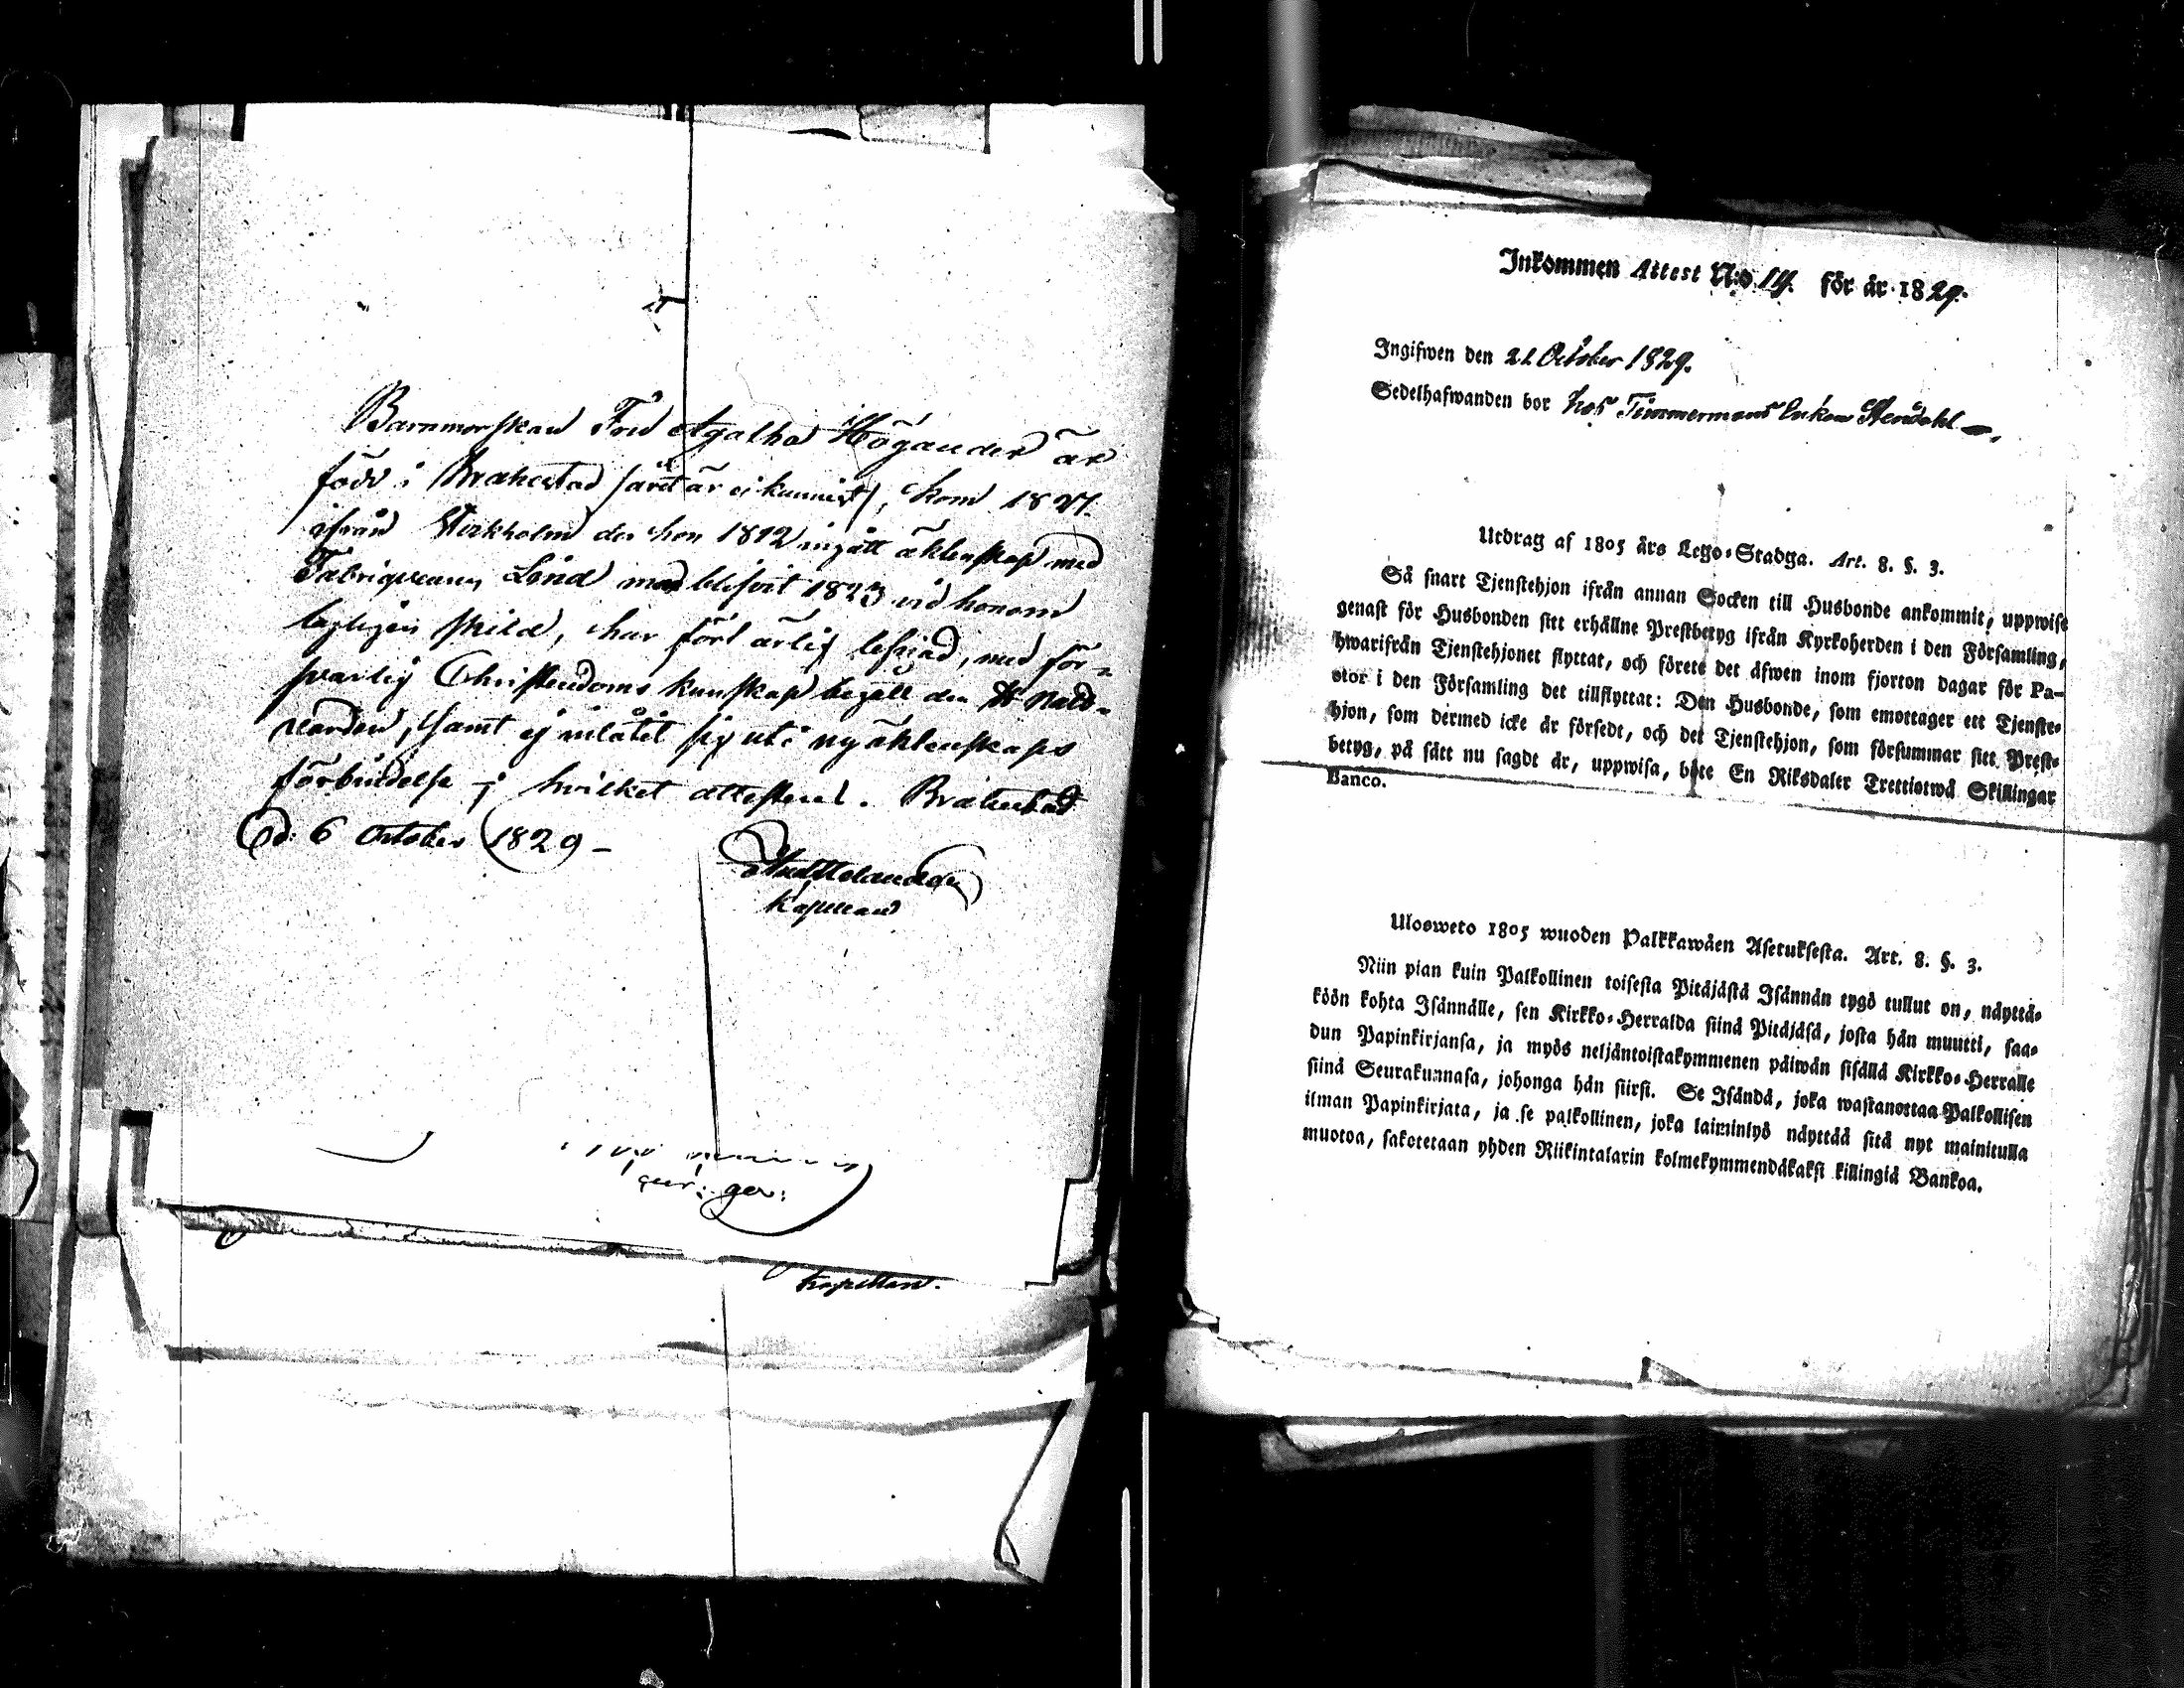 Barnmorskan Fru Agatha Högander är
född i Brahestad (året är ej kunnigt), kom 1827
ifrån Stockholm der hon 1812 ingått äktenskap med
Fabriqueuren Lind men blifvit 1823 vid honom
lagligen skild, har fört ärlig lefnad, med för-
svarlig Christendoms kunskap begått den H. Natt-
varden, samt ej inlåtit sig uti ny äktenskaps
förbindelse; hvilket attesteras. Brahestad
d: 6 October 1829 –
Kapellan
Kapellan.
Inkommen Attest N:o 14. för år 1829.
Ingifwen den 21 October 1829.
Sedelhafwanden bor hos Timmermans Enkan Stendahl
Utdrag af 1805 års Lego-Stadga. Art. 8. §. 3.
Så snart Tjenstehjon ifrån annan Socken till Husbonde ankommit, uppwise
genast för Husbonden sitt erhållne Prestbetyg ifrån Kyrkoherden i den Församling,
hwarifrån Tjenstehjonet flyttat, och förete det äfwen inom fjorton dagar för Pa-
stor i den Församling det tillflyttat: Den Husbonde, som emottager ett Tjenste-
hjon, som dermed icke är försedt, och det Tjenstehjon, som försummar sitt Prest-
betyg, på sätt nu sagdt är, uppwisa, böte En Riksdaler Trettiotwå Skillingar
Banco.
Ulosweto 1805 wuoden Palkkawäen Asetuksesta. Art. 8. §. 3.
Niin pian kuin Palkollinen toisesta Pitäjästä Isännän tygö tullut on, näyttä-
köön kohta Isännälle, sen Kirkko-Herralda siinä Pitäjäsä, josta hän muutti, saa-
dun Papinkirjansa, ja myös neljäntoistakymmenen päiwän sisällä Kirkko-Herralle
siinä Seurakunnasa, johonga hän siirsi. Se Isändä, joka wastanottaa Palkollisen
ilman Papinkirjata, ja se palkollinen, joka laiminlyö näyttää sitä nyt mainitulla
muotoa, sakotetaan yhden Riikintalarin kolmekymmendäkaksi killingiä Bankoa.